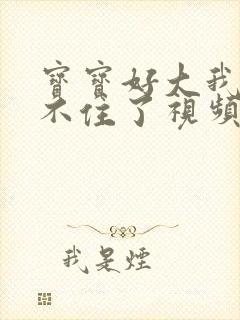 寶寶好大我
不住了視頻
我是煙